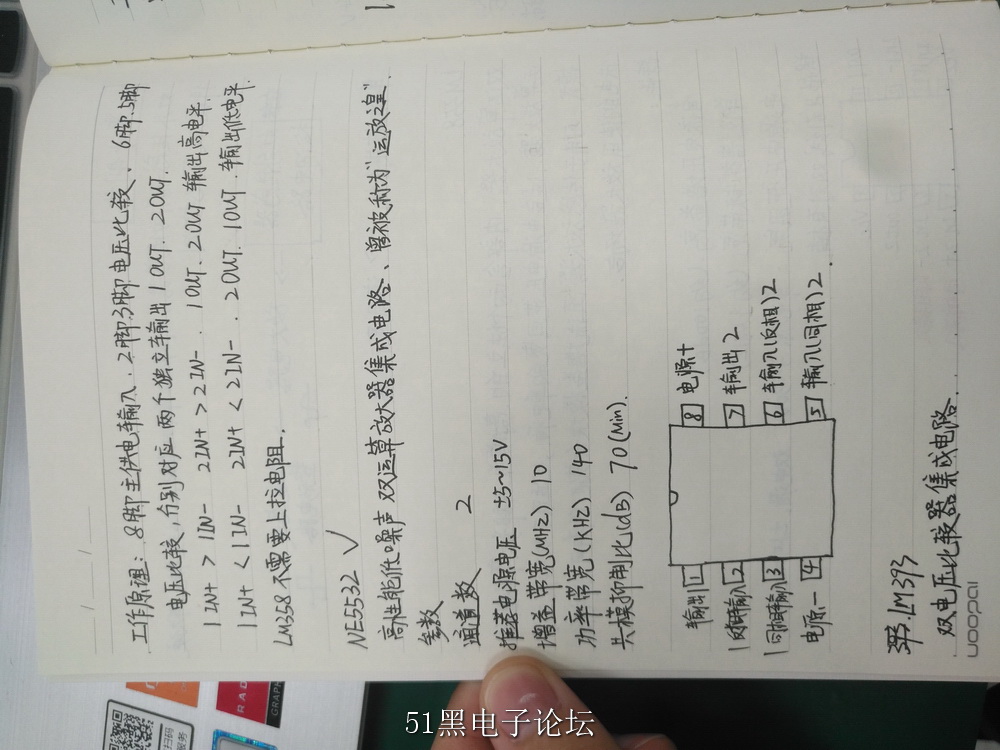 工作原理：8脚主供电输入，2脚.3脚电压比较、6脚.5脚
电压比较，分别对应两个独立输出1OUT. 2OUT.
1IN+ > 1IN- 2IN+ > 2IN- . 1OUT. 2OUT 输出高电平.
1IN+ < 1IN- 2IN+ < 2IN- . 2OUT. 1OUT. 输出低电平.
LM358不需要上拉电阻.
NE5532 √
高性能低噪声 双运算放大器集成电路、曾被称为"运放之皇".
参数
通道数 2
推荐电源电压 ±5~15V
增益带宽(MHz) 10
功率带宽(KHz) 140
共模抑制比(dB) 70(Min).
输出1 1 8 电源+
反相输入 2 7 输出2
同相输入 3 6 输入(反相)2
电源- 4 5 输入(同相)2
LM393
双电压比较器集成电路.
51黑电子论坛
RAD
GRAPH
扫码
服务